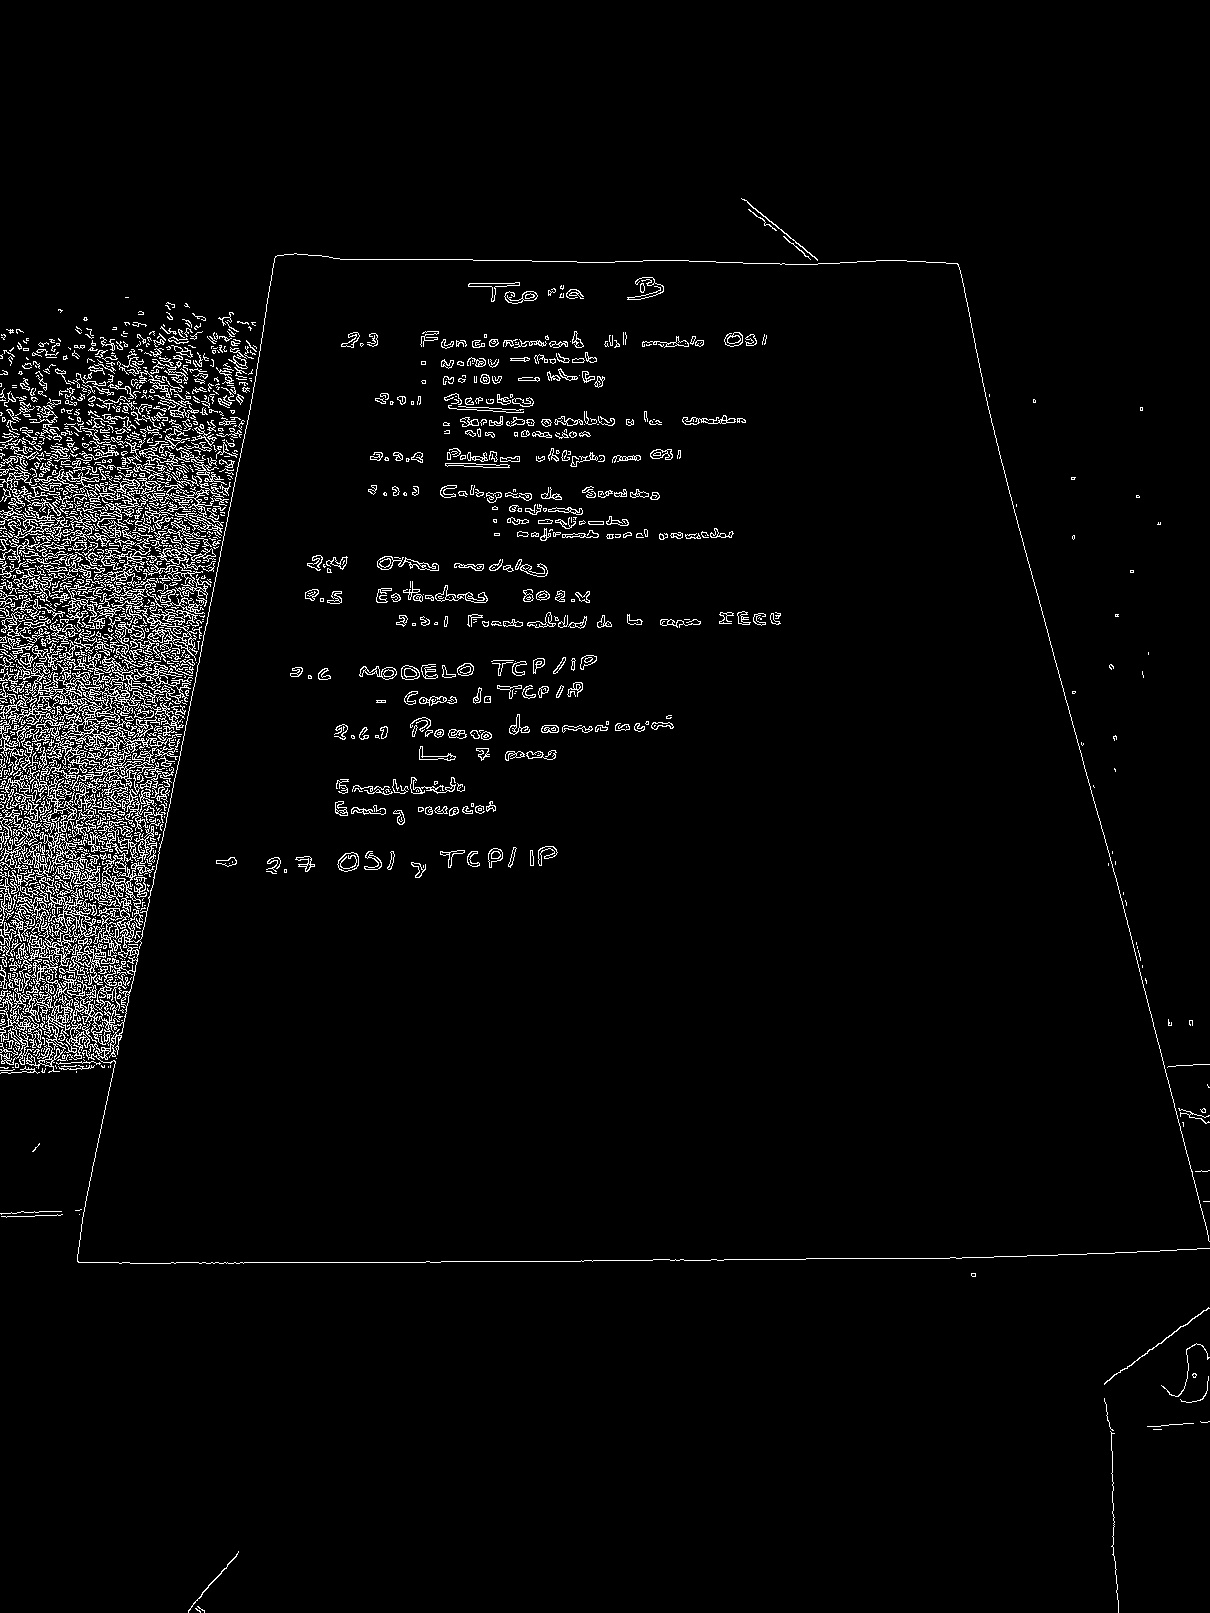 Teoria B
2.3 Funcionamiento del modelo OSI
· N-PDU → Protocolo
· N-IDU → Interfaz
2.3.1 Servicios
· Servicios orientados a la conexion
· sin conexion
2.3.2 Primitivas utilizadas OSI
2.3.3 Categorias de Servicios
· Confirmados
· No confirmados
· confirmado por el proveedor
2.4 Otros modelos
2.5 Estandares 802.X
2.5.1 Funcionalidad de la capa IEEE
2.6 MODELO TCP/IP
- Capas de TCP/IP
2.6.1 Proceso de comunicación
↳ 7 pasos
Encapsulamiento
Envio y recepción
→ 2.7 OSI y TCP/IP